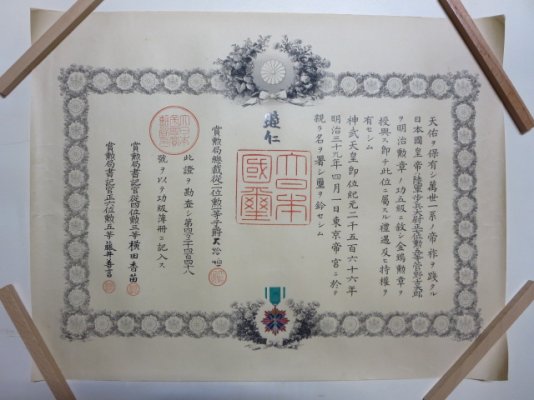 天佑ヲ保有シ萬世一系ノ帝祚ヲ踐タル
日本國皇帝ハ陸軍歩兵大尉正七位勲五等菅野
ヲ明治勲章ノ功五級ニ敘シ金鵄勲章ヲ
授與ス即チ此位ニ属スル禮遇及ヒ特權ヲ
有セシム
神武天皇即位紀元二千五百六十六年
明治三十九年四月一日東京帝宮ニ於テ
親ラ名ヲ署シ璽ヲ鈐セシム
睦仁
大日本國璽
賞勲局總裁從二位勲一等子爵大給恒
此證ヲ勘査シ第四
號ヲ以テ功級簿冊ニ記入ス
賞勲局書記官從四位勲三等横田香苗
賞勲局書記官正六位勲五等藤井善言